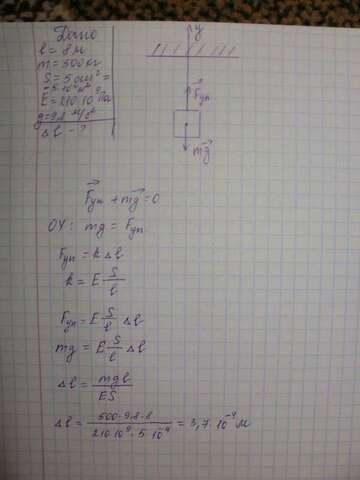 Дано
l = 8 м
m = 500 кг
S = 5 см² =
= 5·10⁻⁴ м²
E = 210·10⁹ Па
g = 9,8 м/с²
Δl - ?
y
Fуп
mg
Fуп + mg = 0
OY: mg = Fуп
Fуп = k Δl
k = E S/l
Fуп = E S/l Δl
mg = E S/l Δl
Δl = mgl/ES
Δl = 500·9,8·8/210·10⁹·5·10⁻⁴ = 3,7·10⁻⁴ м